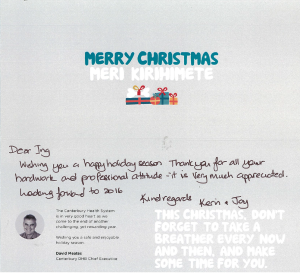 MERRY CHRISTMAS
MERI KIRIHIMETE
Dear Ing
Wishing you a happy holiday season Thank you for all your
hardwork and professional attitude - it is very much appreciated.
Looking forward to 2016
Kind regards Kerin & Jay
The Canterbury Health System
is in very good heart as we
come to the end of another
challenging, yet rewarding year.
Wishing you a safe and enjoyable
holiday season.
David Meates
Canterbury DHB Chief Executive
THIS CHRISTMAS, DON'T
FORGET TO TAKE A
BREATHER EVERY NOW
AND THEN, AND MAKE
SOME TIME FOR YOU.